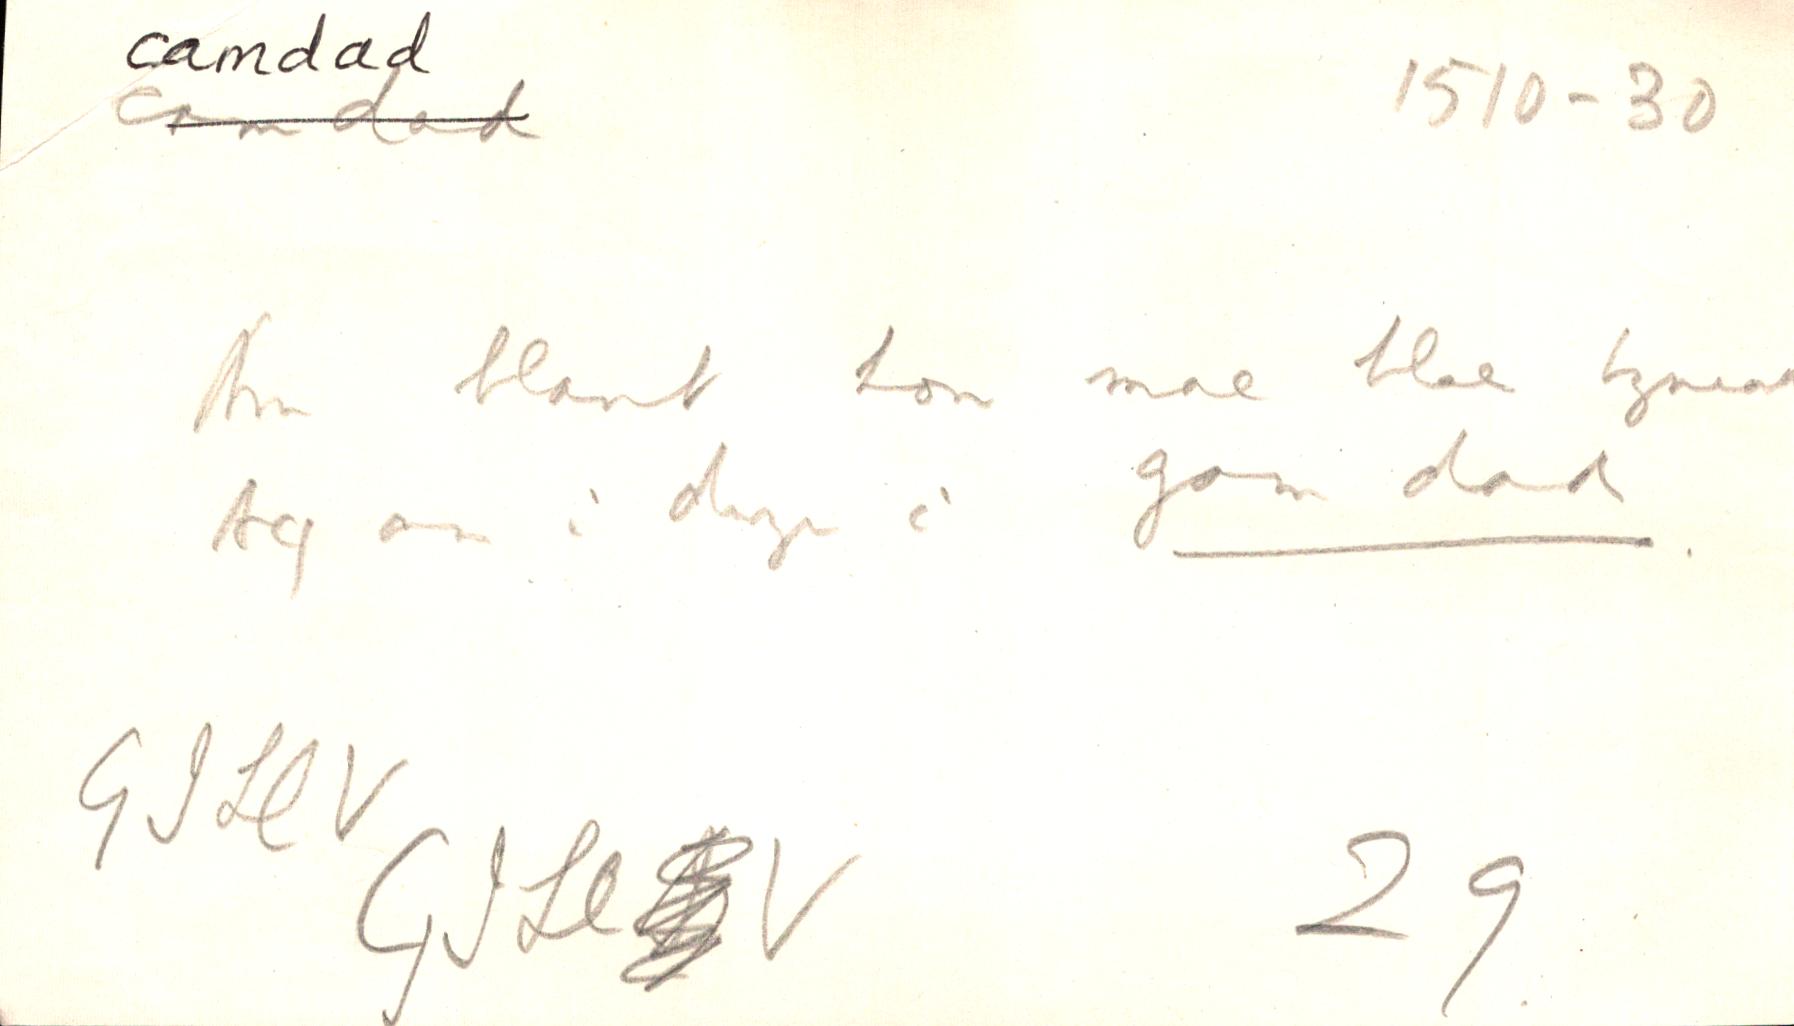 camdad
camdad
1510-30
Am blant hon mae blae
Ac am i dwyn i gam dad.
GILlV
GILl V
29